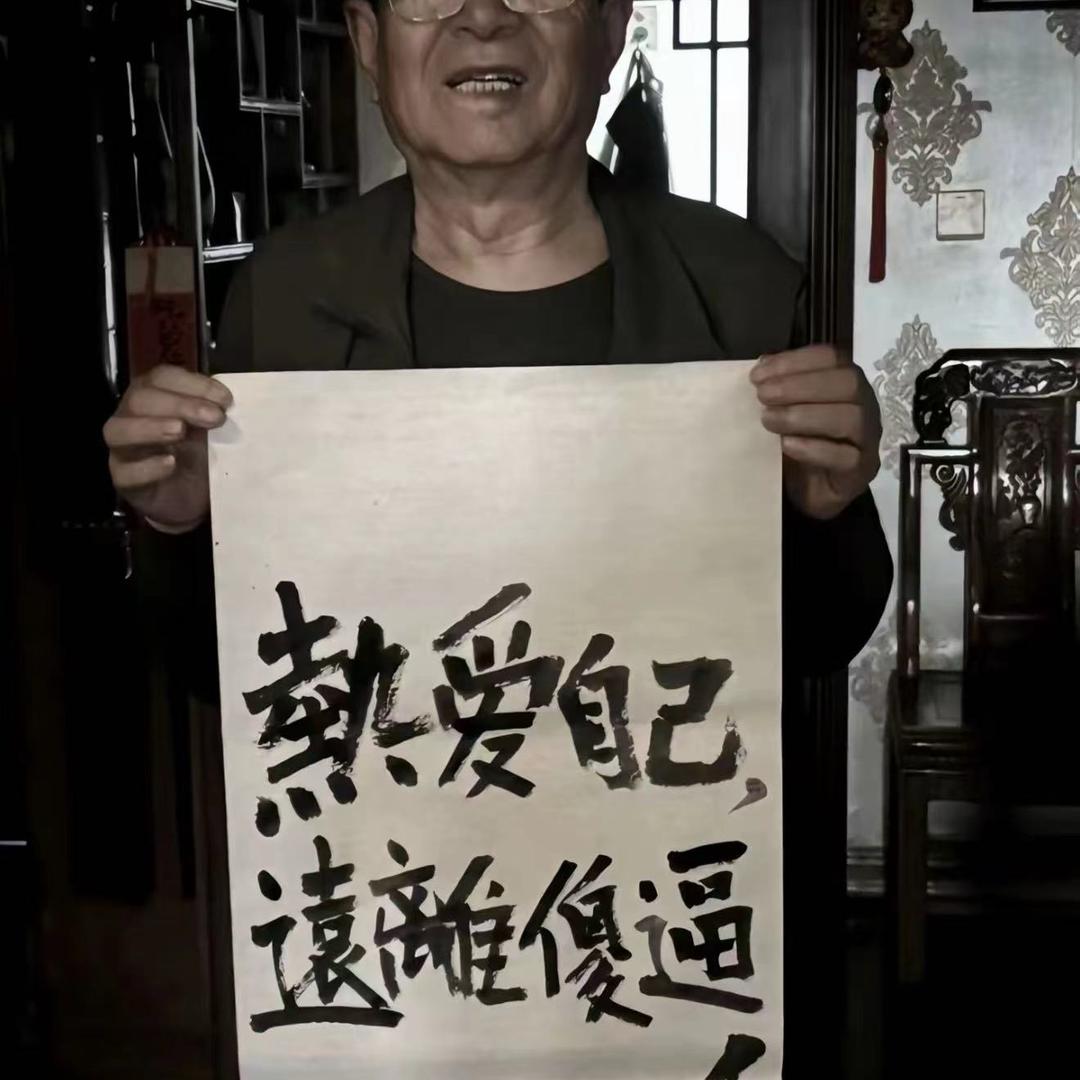 熱爱自己，
遠離傻逼